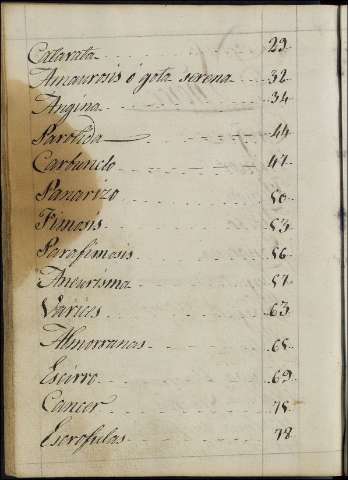 Catarata 29
Amaurosis ó gota serena 32
Angina 34
Parotida 44
Carbunclo 47
Panarizo 50
Fimosis 53
Parafimosis 56
Aneurisma 57
Varices 63
Almorranas 65
Escirro 69
Cancer
Escrofulas 78